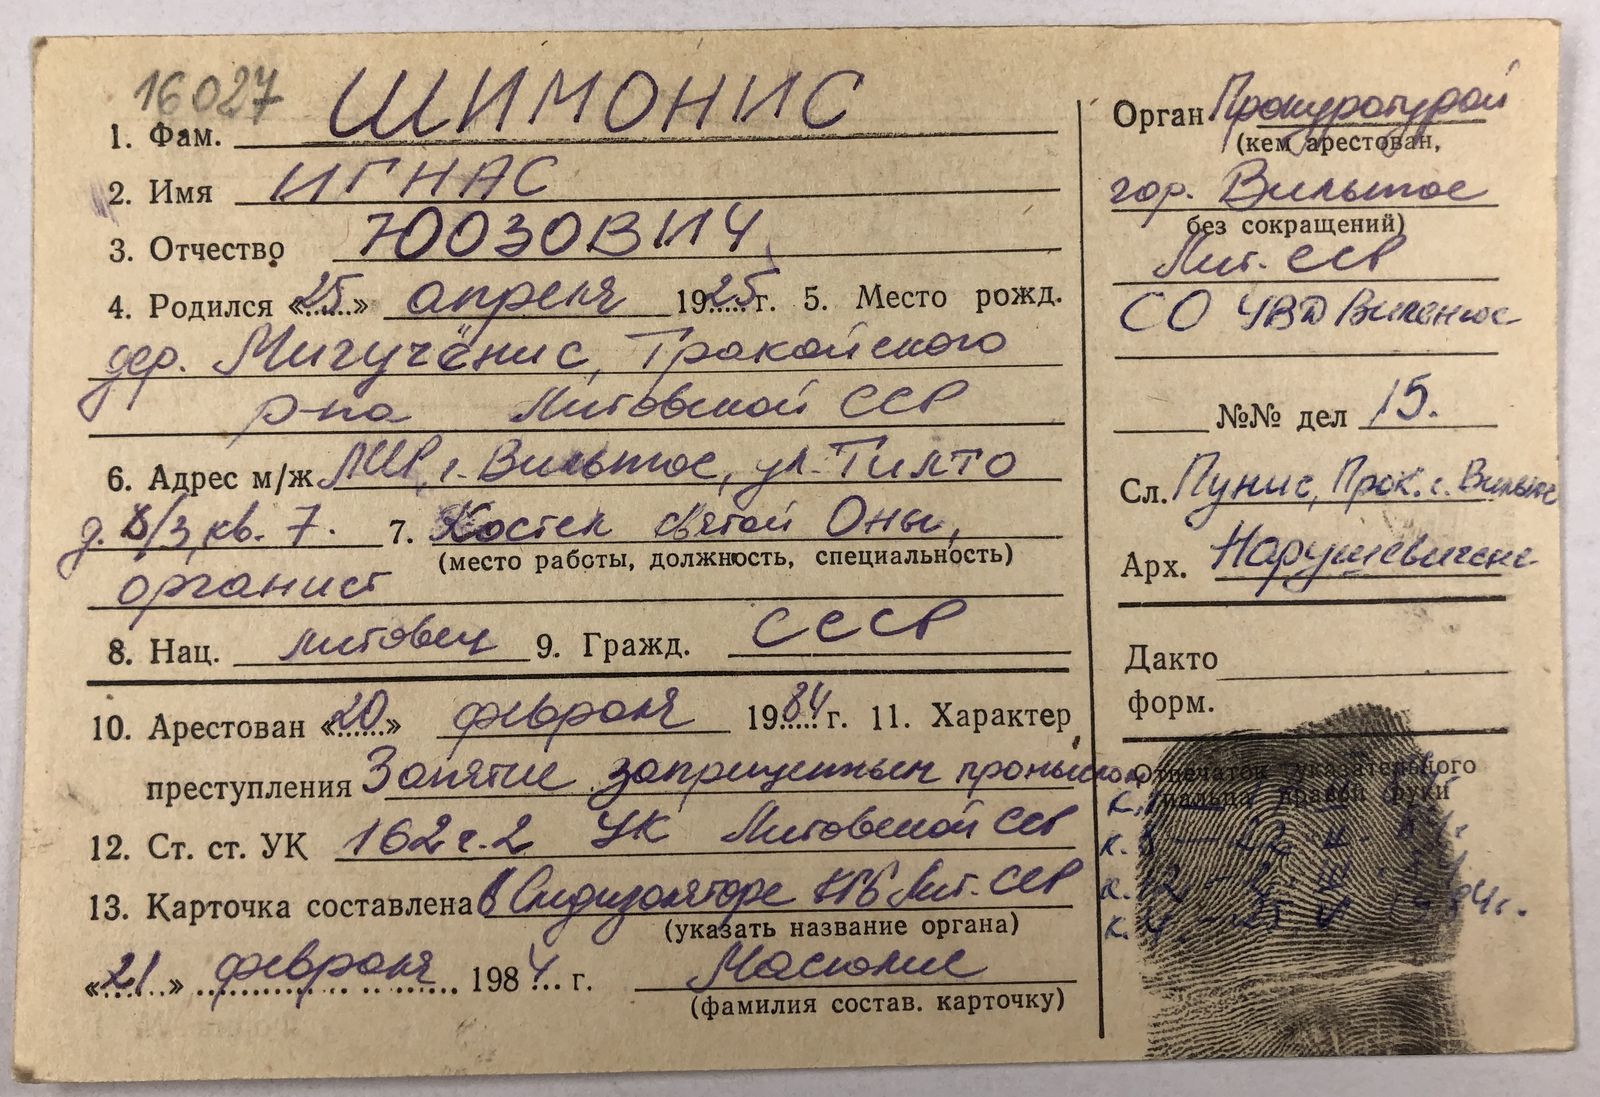 16027
1. Фам. ШИМОНИС
2. Имя ИГНАС
3. Отчество ЮОЗОВИЧ
4. Родился «25» апреля 1925 г. 5. Место рожд.
дер. Мигучёнис, Тракайского
р-на Литовской ССР
6. Адрес м/ж г. Вильнюс, ул. Тилто
д. /3, кв. 7. 7. Костел святой Оны,
(место работы, должность, специальность)
органист
8. Нац. литовец 9. Гражд. СССР
10. Арестован «20» февраля 1984 г. 11. Характер
преступления Занятие запрещенным промыслом
12. Ст. ст. УК 162 ч. 2 УК Литовской ССР
13. Карточка составлена в Следизоляторе КГБ Лит. ССР
(указать название органа)
«21» февраля 1984 г. Масюлис
(фамилия состав. карточку)
Орган Прокуратурой
(кем арестован,
гор. Вильнюс
без сокращений)
Лит. ССР
СО УВД Вильнюс
№№ дел 15.
Сл. Пунис, Прок. г. Вильнюс
Арх. Нарушевичене
Дакто
форм.
Отпечаток указательного
пальца правой руки